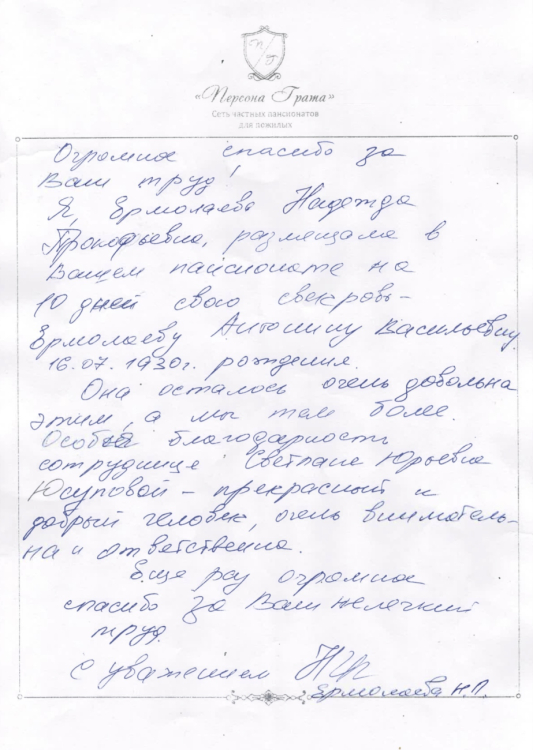 П Г
«Персона Грата»
Сеть частных пансионатов
для пожилых
Огромное спасибо за
Ваш труд!
Я, Ермолаева Надежда
Прокофьевна, размещала в
Вашем пансионате на
10 дней свою свекровь -
Ермолаеву Антонину Васильевну,
16.07.1930г. рождения.
Она осталось очень довольна
этим, а мы тем более.
Особая благодарность
сотруднице Светлане Юрьевне
Юсуповой - прекрасный и
добрый человек, очень вниматель-
на и ответственна.
Еще раз огромное
спасибо за Ваш нелегкий
труд.
С уважением
Ермолаева Н.П.